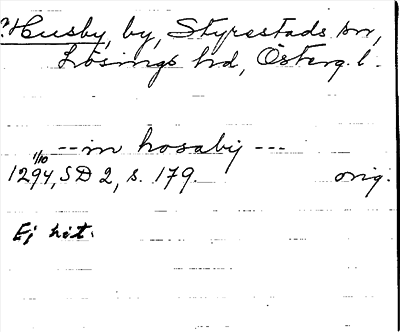 ?Husby, by, Styrestads sn,
Lösings hd, Österg. l.
--- in hosaby ---
1/10
1294, SD 2, s. 179. orig.
Ej hit.